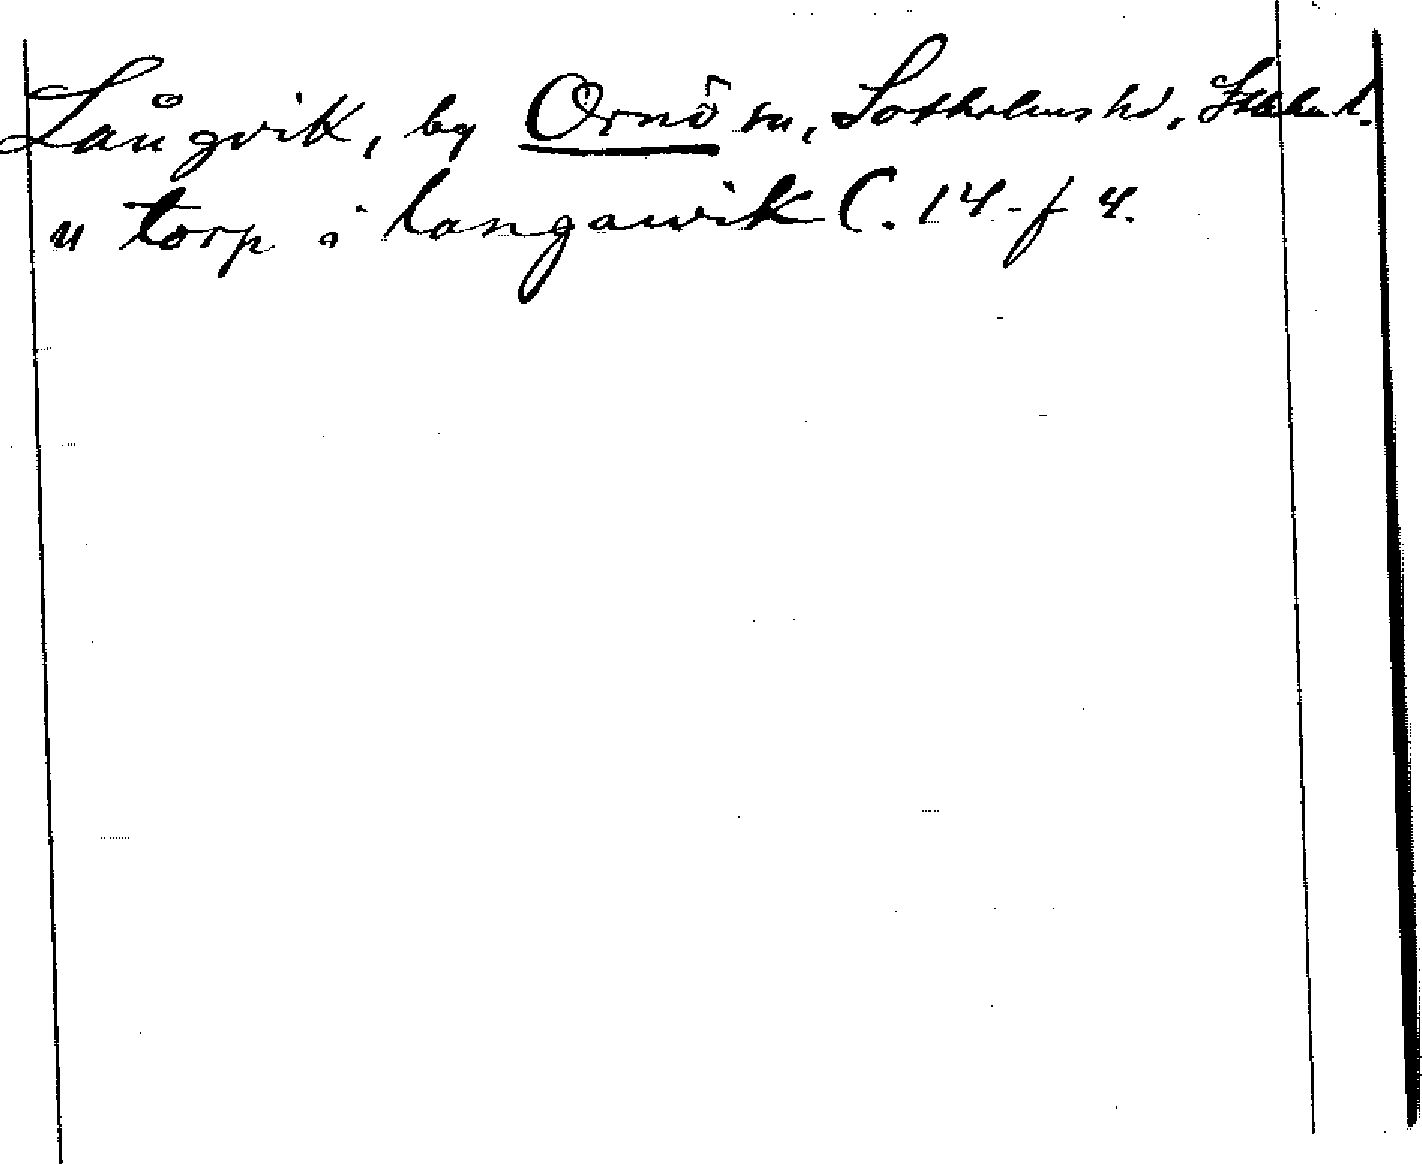 Långvik, by Ornö sn, Sotholms hd, Sthlms l.
u torp i langawik C. 14 f 4.